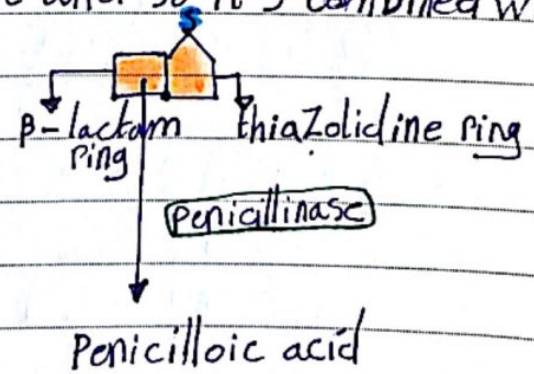 combined w
S
β-lactam thiazolidine ring
ring
penicillinase
Penicilloic acid